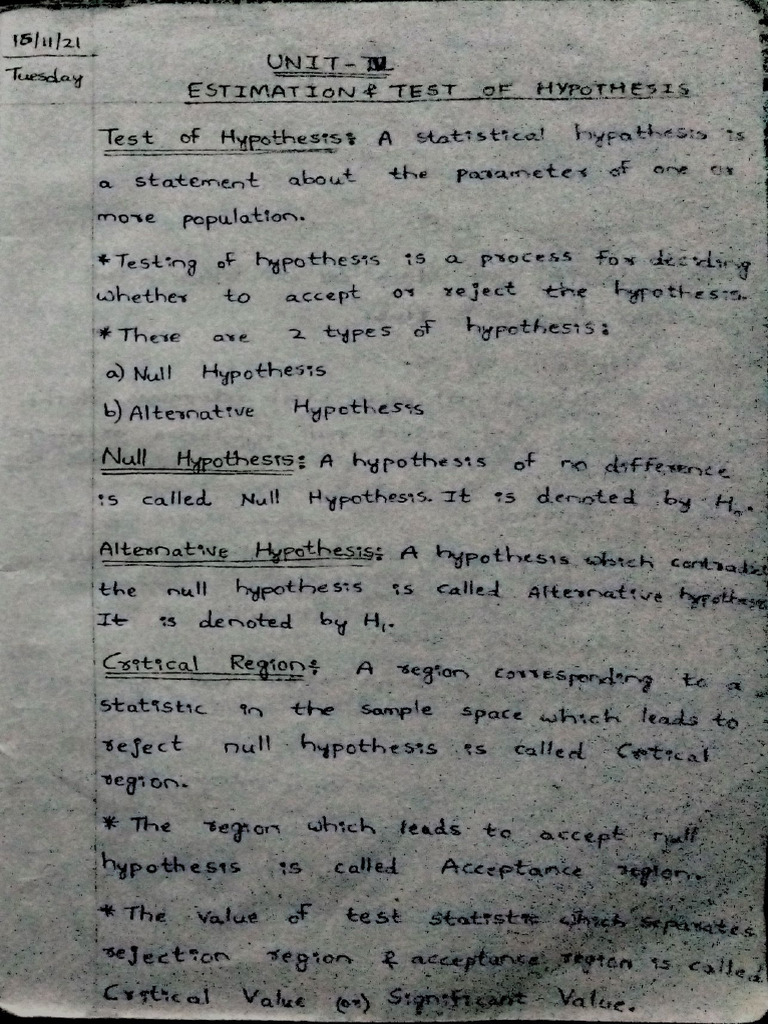 15/11/21
Tuesday
UNIT-IV
ESTIMATION & TEST OF HYPOTHESIS
Test of Hypothesis: A statistical hypothesis is
a statement about the parameter of one or
more population.
* Testing of hypothesis is a process for deciding
whether to accept or reject the hypothesis.
* There are 2 types of hypothesis:
a) Null Hypothesis
b) Alternative Hypothesis
Null Hypothesis: A hypothesis of no difference
is called Null Hypothesis. It is denoted by H₀.
Alternative Hypothesis: A hypothesis which contradict
the null hypothesis is called Alternative hypothesis
It is denoted by H₁.
Critical Region: A region corresponding to a
statistic in the sample space which leads to
reject null hypothesis is called Critical
region.
* The region which leads to accept null
hypothesis is called Acceptance region.
* The value of test statistic which separates
rejection region & acceptance region is called
Critical Value (or) Significant Value.